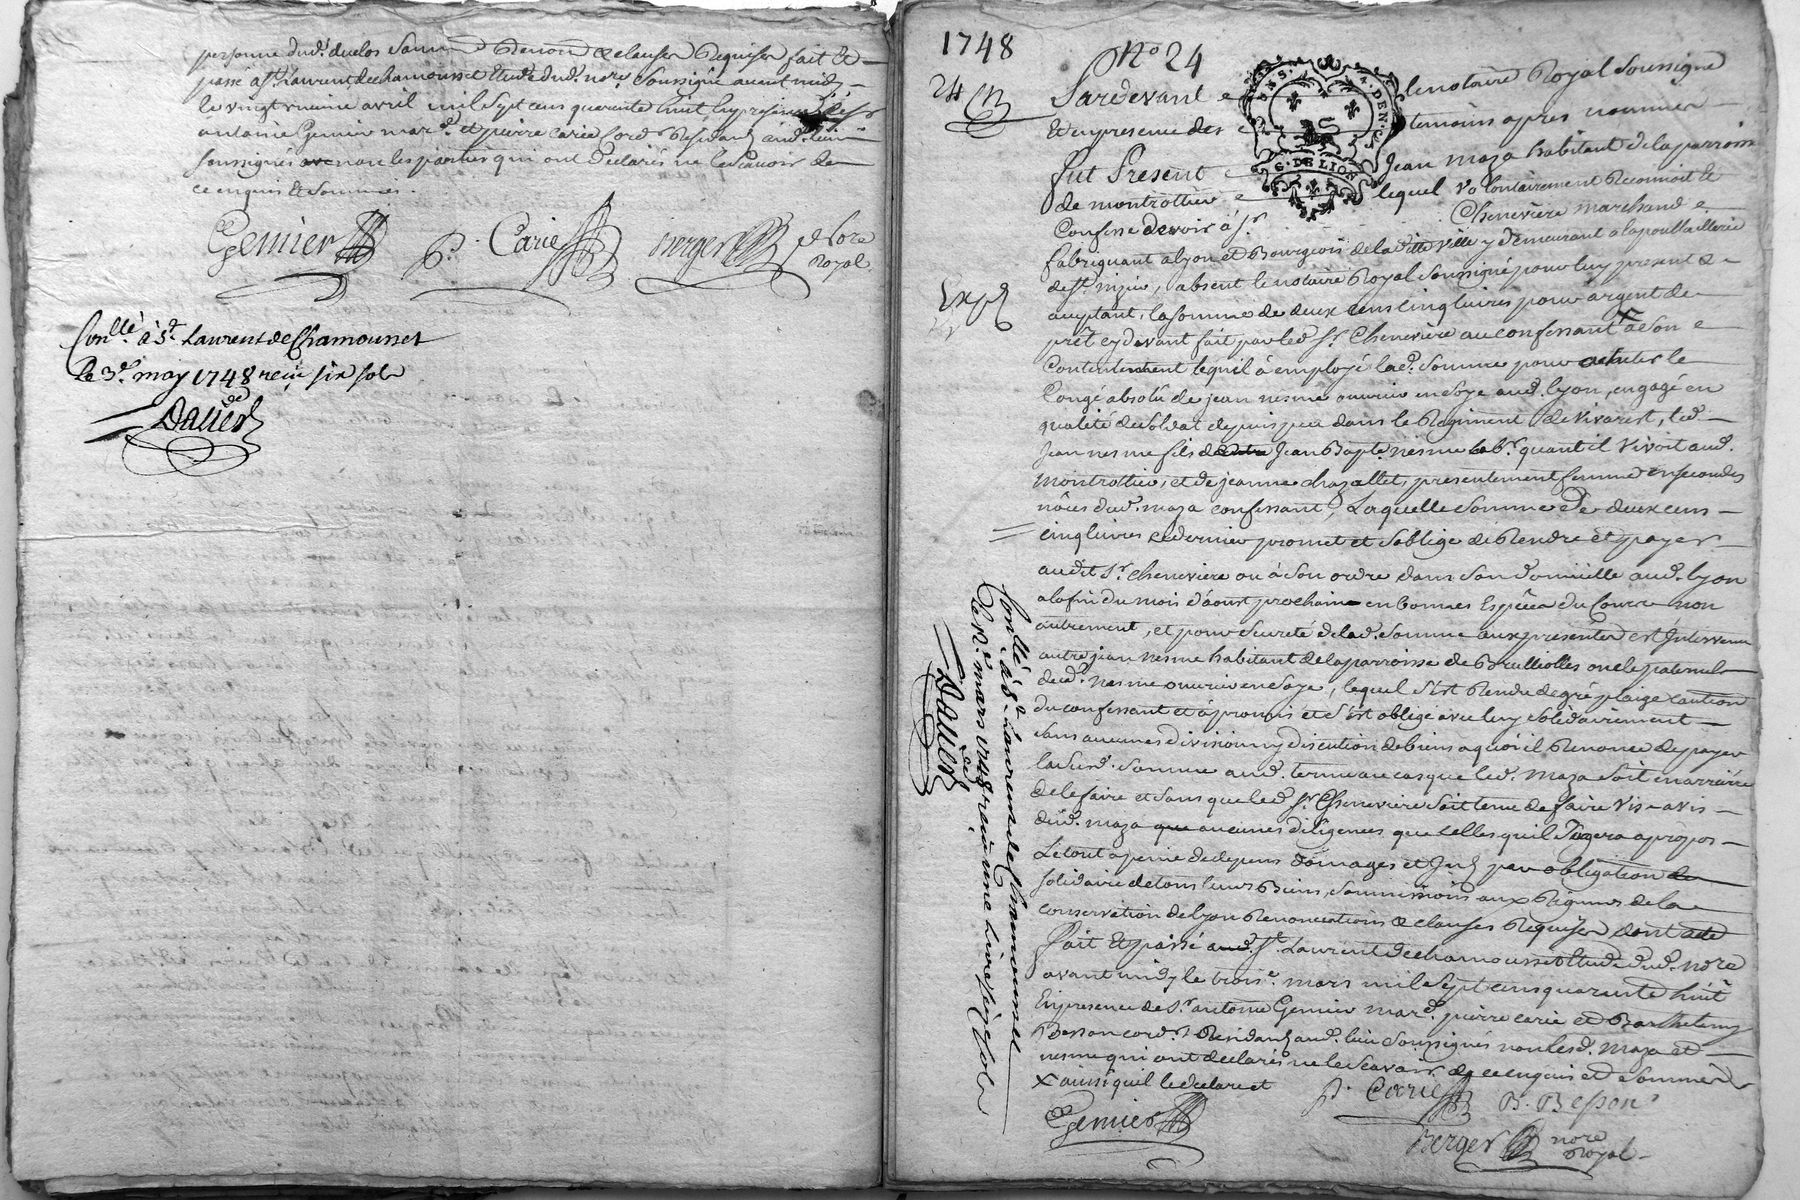 personne dud. duclos Sauf Renon & clauses Requises fait et
passé a St. Laurent de chamousset Etude dud. nore. Soussigné avant midy
le vingt neuvie avril mil Sept cens quarente huit, En presence de Sr.
antoine Gemier mard. et pierre Carie Cordr. Residants aud. lieu
soussignés avec nore les parties qui ont declarés ne le scavoir de
ce enquis Et Sommés.
Gemier P. Carie Berger nore
Royal.
Conllé. à St. Laurent de Chamousset
le 3e. may 1748 reçu six sols
Davier
1748 No 24
24
Pardevant le notaire Royal Soussigné
Et en presence des temoins apres nommés
fut Present Jean maza habitant de la parroisse
de montrottier lequel volontairement Reconnoit Et
Confesse devoir à Sr. Chenevière marchand
fabriquant a lyon et Bourgeois de laditte ville y demeurant a la poullaillerie
de St. nizier, absent le notaire Royal Soussigné pour luy present &
aceptant, la somme de deux cens cinq livres pour argent de
prêt cy devant fait par led. Sr. Chenevière au confessant à Son
Contentement lequil à employé lad. Somme pour acheter le
Congé absolu de jean nesme ouvrier en Soye aud. lyon, engagé en
qualité de Soldat depuis peu dans le Regiment de Vivarest, led.
Jean nesme fils de Jean Bapte. nesme labr. quant il vivoit aud.
montrottier, et de jeanne chazallet, presentement femme en secondes
nôces dud. maza confessant, Laquelle Somme De deux cens
cinq livres ce dernier promet et s'oblige de Rendre et payer
audit Sr. Chenevière ou à Son ordre dans Son Domicille aud. lyon
a la fin du mois d'aoust prochain en bonnes Espèces du Cours non
autrement, et pour Seureté de lad. Somme aux presentes est Intervenu
autre jean nesme habitant de la parroisse de Brulliolles oncle paternel
dud. nesme ouvrier en Soye, lequel s'est Rendu de gré plaige caution
du confessant et à promis et s'est obligé avec luy Solidairement
sans aucunes division ny discution de biens a quoi il Renonce de payer
la susd. Somme aud. terme au cas que led. maza Soit en arriere
de le faire et sans que led. Sr. Chenevière Soit tenu de faire vis a vis
dud. maza que aucunes diligences que celles quil Jugera apropos
Le tout a peine de depens domages et Jnt. par obligation de
solidaire de tous leurs Biens, soumissions aux Rigeurs de la
conservation de lyon Renonciations & clauses Requises dont acte
fait Et passé aud. St. Laurent de chamousset Etude dud. nore
avant midy le troise. mars mil Sept cens quarente huit
En presence de Sr. antoine Gemier mard. pierre carie et Barthelemy
Besson cordrs. Residants aud. lieu Soussignés non lesd. maza et
nesme qui ont declarés ne le Scavoir de ce enquis et Sommés
x ainsi quil le declare et
Gemier P. Carie B. Besson
Berger nore
Royal
Expd
Conllé. à St. Laurent de Chamousset
le 12e. mars 1748 reçu une livre seize sols
Davier
G. DE LION